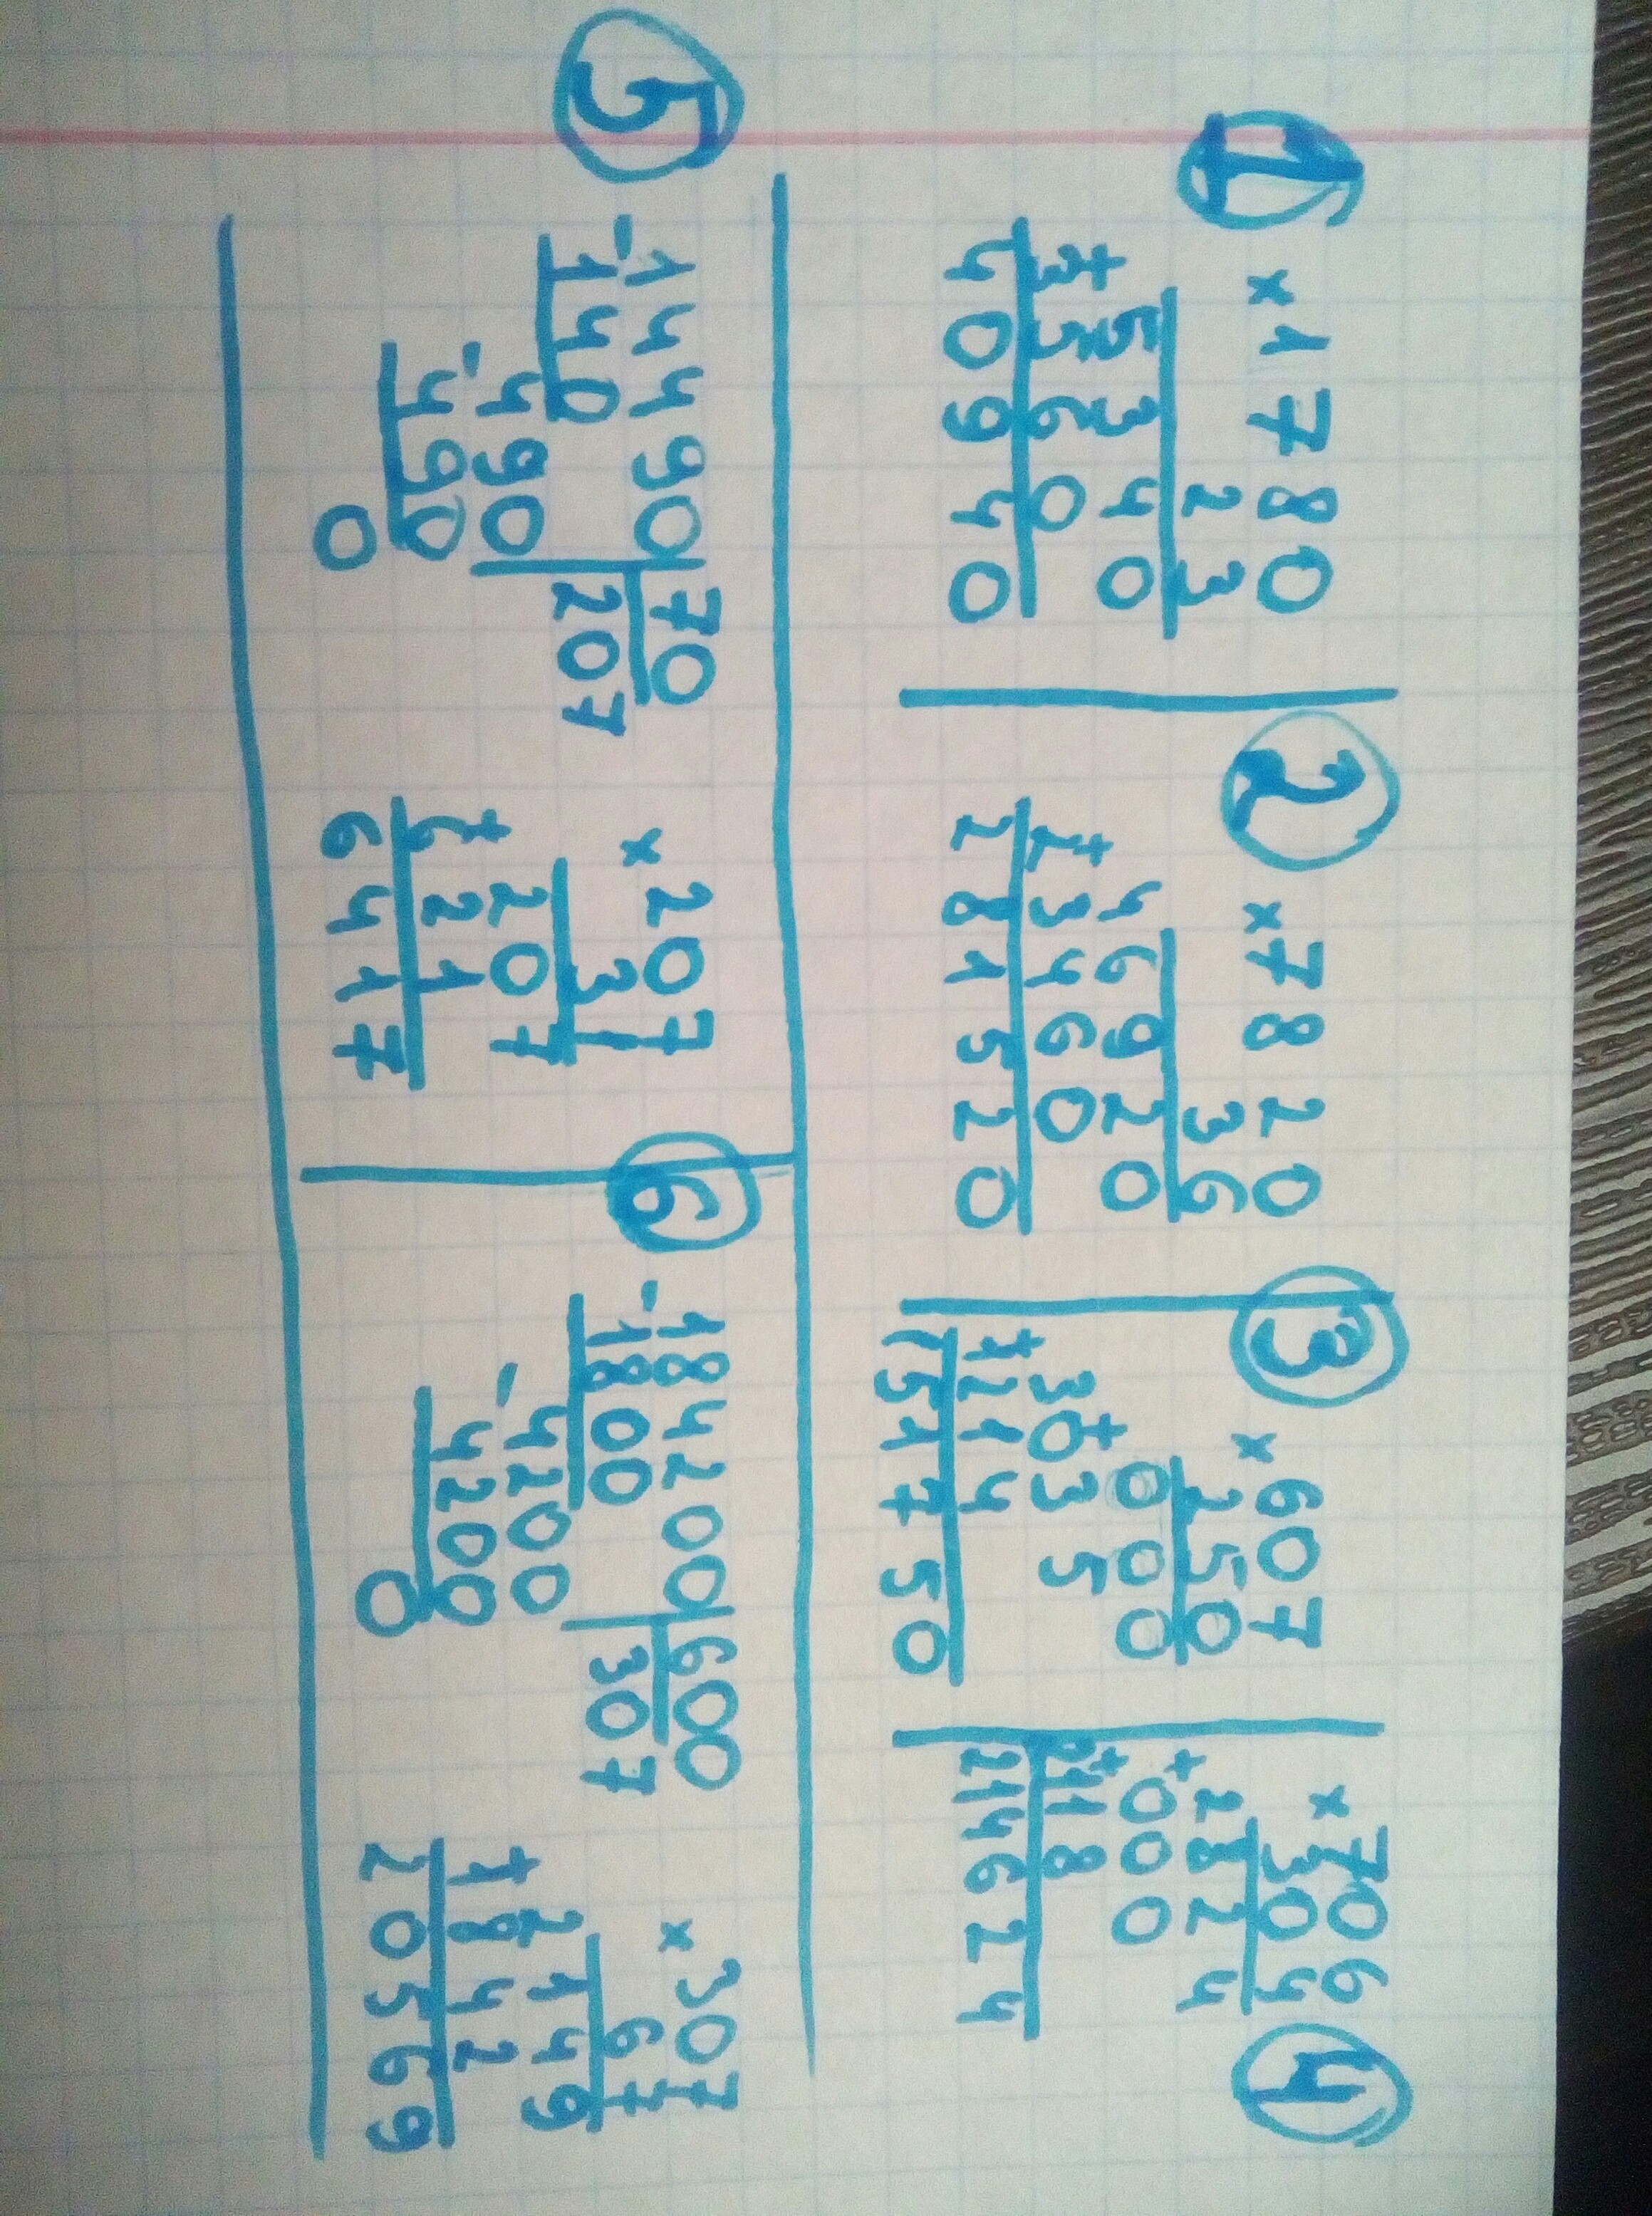 1
× 1780
23
5340
+ 3560
40940
2
× 7820
36
46920
+ 23460
281520
3
× 607
250
+ 000
+ 3035
1214
151750
4
× 706
304
+ 2824
+ 000
2118
214624
5
- 14490 70
140 207
- 490
490
0
× 207
31
+ 207
621
6417
6
- 184200 600
1800 307
- 4200
4200
0
× 307
67
+ 2149
1842
20569